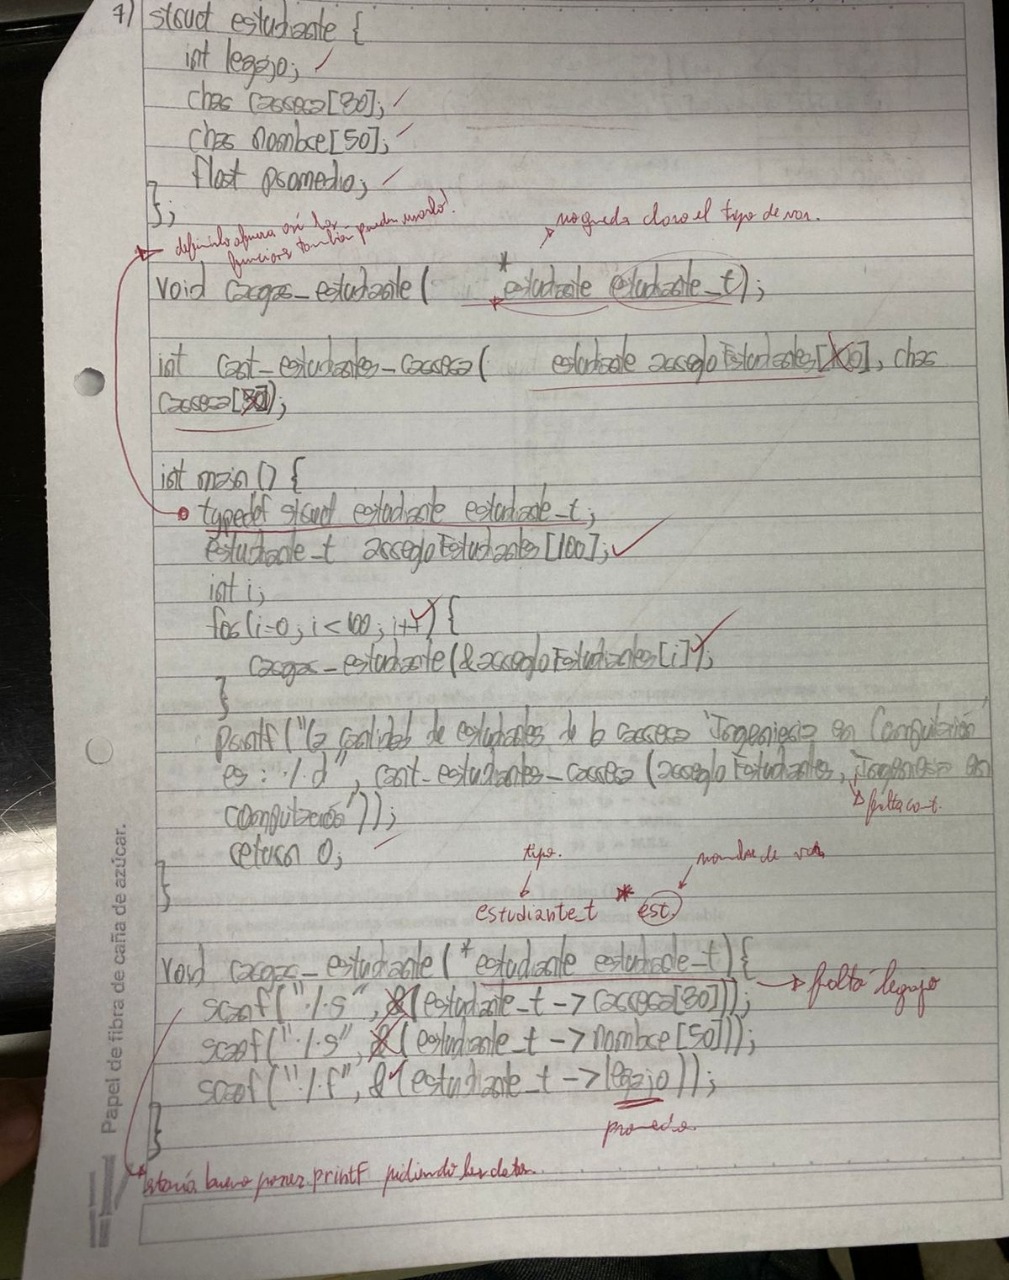 7) struct estudiante {
int legajo;
char carrera[30];
char nombre[50];
float promedio;
};
definirlo afuera así las
funciones también pueden usarlo!
no queda claro el tipo de var.
void cargar_estudiante( *estudiante estudiante_t);
int cant_estudiantes_carrera( estudiante arregloEstudiantes[100], char
carrera[30]);
int main () {
typedef struct estudiante estudiante_t;
estudiante_t arregloEstudiantes[100];
int i;
for(i=0; i<100; i++) {
cargar_estudiante(&arregloEstudiantes[i]);
}
printf("La cantidad de estudiantes de la carrera 'Ingenieria en Computación'
es: %d", cant_estudiantes_carrera (arregloEstudiantes, 'Ingenieria en
computación'));
falta
return 0;
}
tipo.
nombre de var
estudiante_t * est)
void cargar_estudiante (*estudiante estudiante_t){
falta legajo
scanf("%s", &(estudiante_t -> carrera[30]));
scanf("%s", &(estudiante_t -> nombre[50]));
scanf("%f", &(estudiante_t -> legajo));
promedio
}
estaría bueno poner printf pidiendo los datos.
Papel de fibra de caña de azúcar.